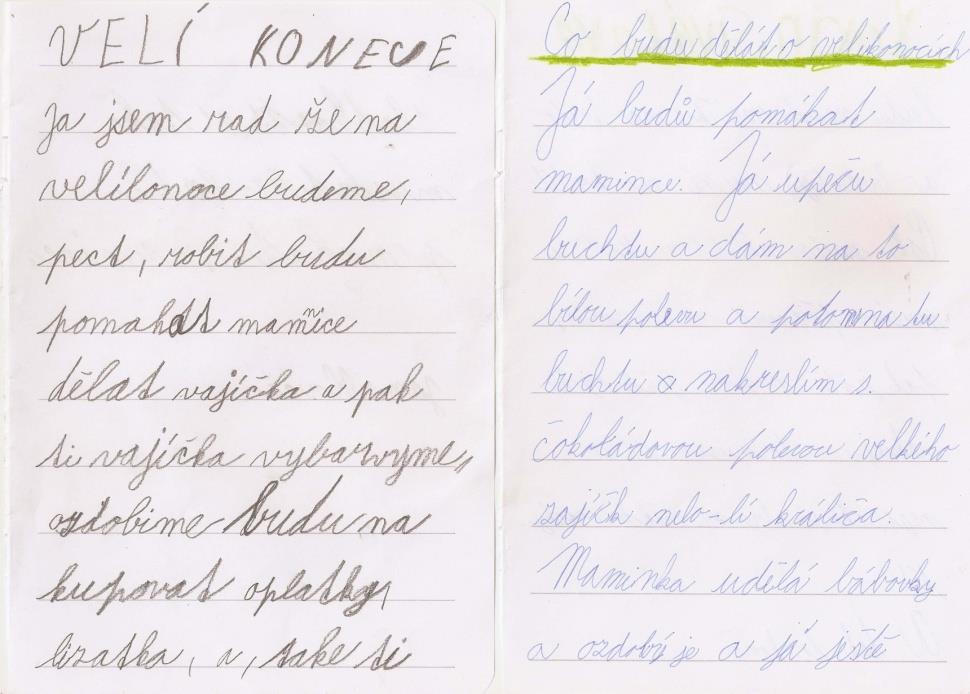 VELÍ KONECE
Ja jsem rad že na
velílonoce budeme,
pect, robit budu
pomahat mamince
dělat vajíčka a pak
ti vajíčka vybarvyme,,
ozdobime budu na
kupovat oplatky,
lizatka, a, take ti
Co budu dělát o velikonocích
Já budů pomákat
mamince. Já upeču
buchtu a dám na to
bílou polevu a potom na tu
buchtu nakreslím s.
čokoládovou polevou velkého
zajíčk nebo-lí králiča.
Maminka udělá bábovky
a ozdobí je a já ještě